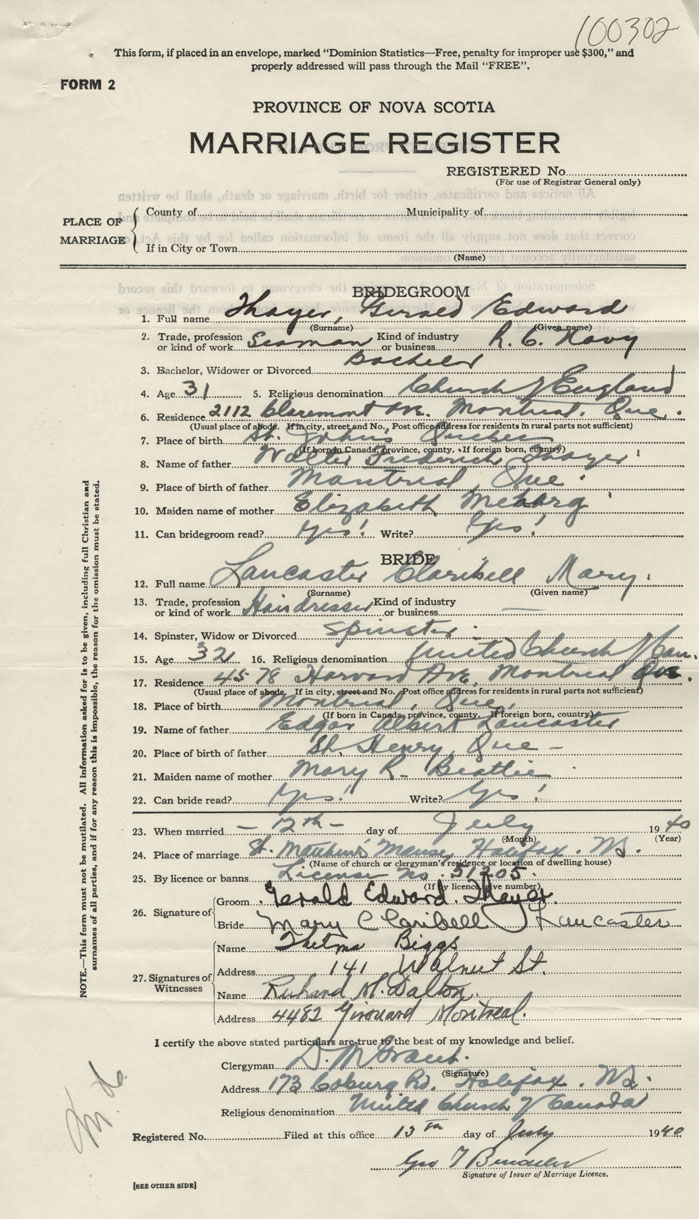 100302
This form, if placed in an envelope, marked "Dominion Statistics—Free, penalty for improper use $300," and
properly addressed will pass through the Mail "FREE".
FORM 2
PROVINCE OF NOVA SCOTIA
MARRIAGE REGISTER
REGISTERED No.
(For use of Registrar General only)
PLACE OF MARRIAGE
County of Municipality of
If in City or Town
(Name)
BRIDEGROOM
1. Full name Thayer, Gerald Edward
(Surname) (Given name)
2. Trade, profession or kind of work Seaman Kind of industry or business R. C. Navy
3. Bachelor, Widower or Divorced Bachelor
4. Age 31 5. Religious denomination Church of England
6. Residence 2112 Claremont Ave. Montreal, Que.
(Usual place of abode. If in city, street and No., Post office address for residents in rural parts not sufficient)
7. Place of birth St. Johns Quebec
(If born in Canada, province, county. If foreign born, country)
8. Name of father Walter Frederick Thayer
9. Place of birth of father Montreal, Que.
10. Maiden name of mother Elizabeth
11. Can bridegroom read? Yes! Write? Yes!
BRIDE
12. Full name Lancaster Claribell Mary.
(Surname) (Given name)
13. Trade, profession or kind of work Hairdresser Kind of industry or business —
14. Spinster, Widow or Divorced Spinster
15. Age 32 16. Religious denomination United Church of Can.
17. Residence 4578 Harvard Ave, Montreal Que.
(Usual place of abode, If in city, street and No., Post office address for residents in rural parts not sufficient)
18. Place of birth Montreal, Que,
(If born in Canada, province, county. If foreign born, country)
19. Name of father Edgar Albert Lancaster
20. Place of birth of father St. Henry, Que –
21. Maiden name of mother Mary R. Beattie
22. Can bride read? Yes! Write? Yes!
23. When married – 12th – day of July 1940
(Month) (Year)
24. Place of marriage St. Matthew's Manse, Halifax. N.S.
(Name of church or clergyman's residence or location of dwelling house)
25. By licence or banns License No. 51205.
(If by licence, give number)
26. Signature of
Groom Gerald Edward Thayer
Bride Mary Claribell Lancaster
27. Signatures of Witnesses
Name Thelma Biggs
Address 141 Walnut St.
Name Richard M. Dalton.
Address 4482 Girouard Montreal.
I certify the above stated particulars are true to the best of my knowledge and belief.
Clergyman D. M. Grant.
(Signature)
Address 173 Coburg Rd. Halifax. N.S.
Religious denomination United Church of Canada
Registered No. Filed at this office 13th day of July 1940
Geo T
Signature of Issuer of Marriage Licence.
[SEE OTHER SIDE]
NOTE.—This form must not be mutilated. All information asked for is to be given, including full Christian and
surnames of all parties, and if for any reason this is impossible, the reason for the omission must be stated.